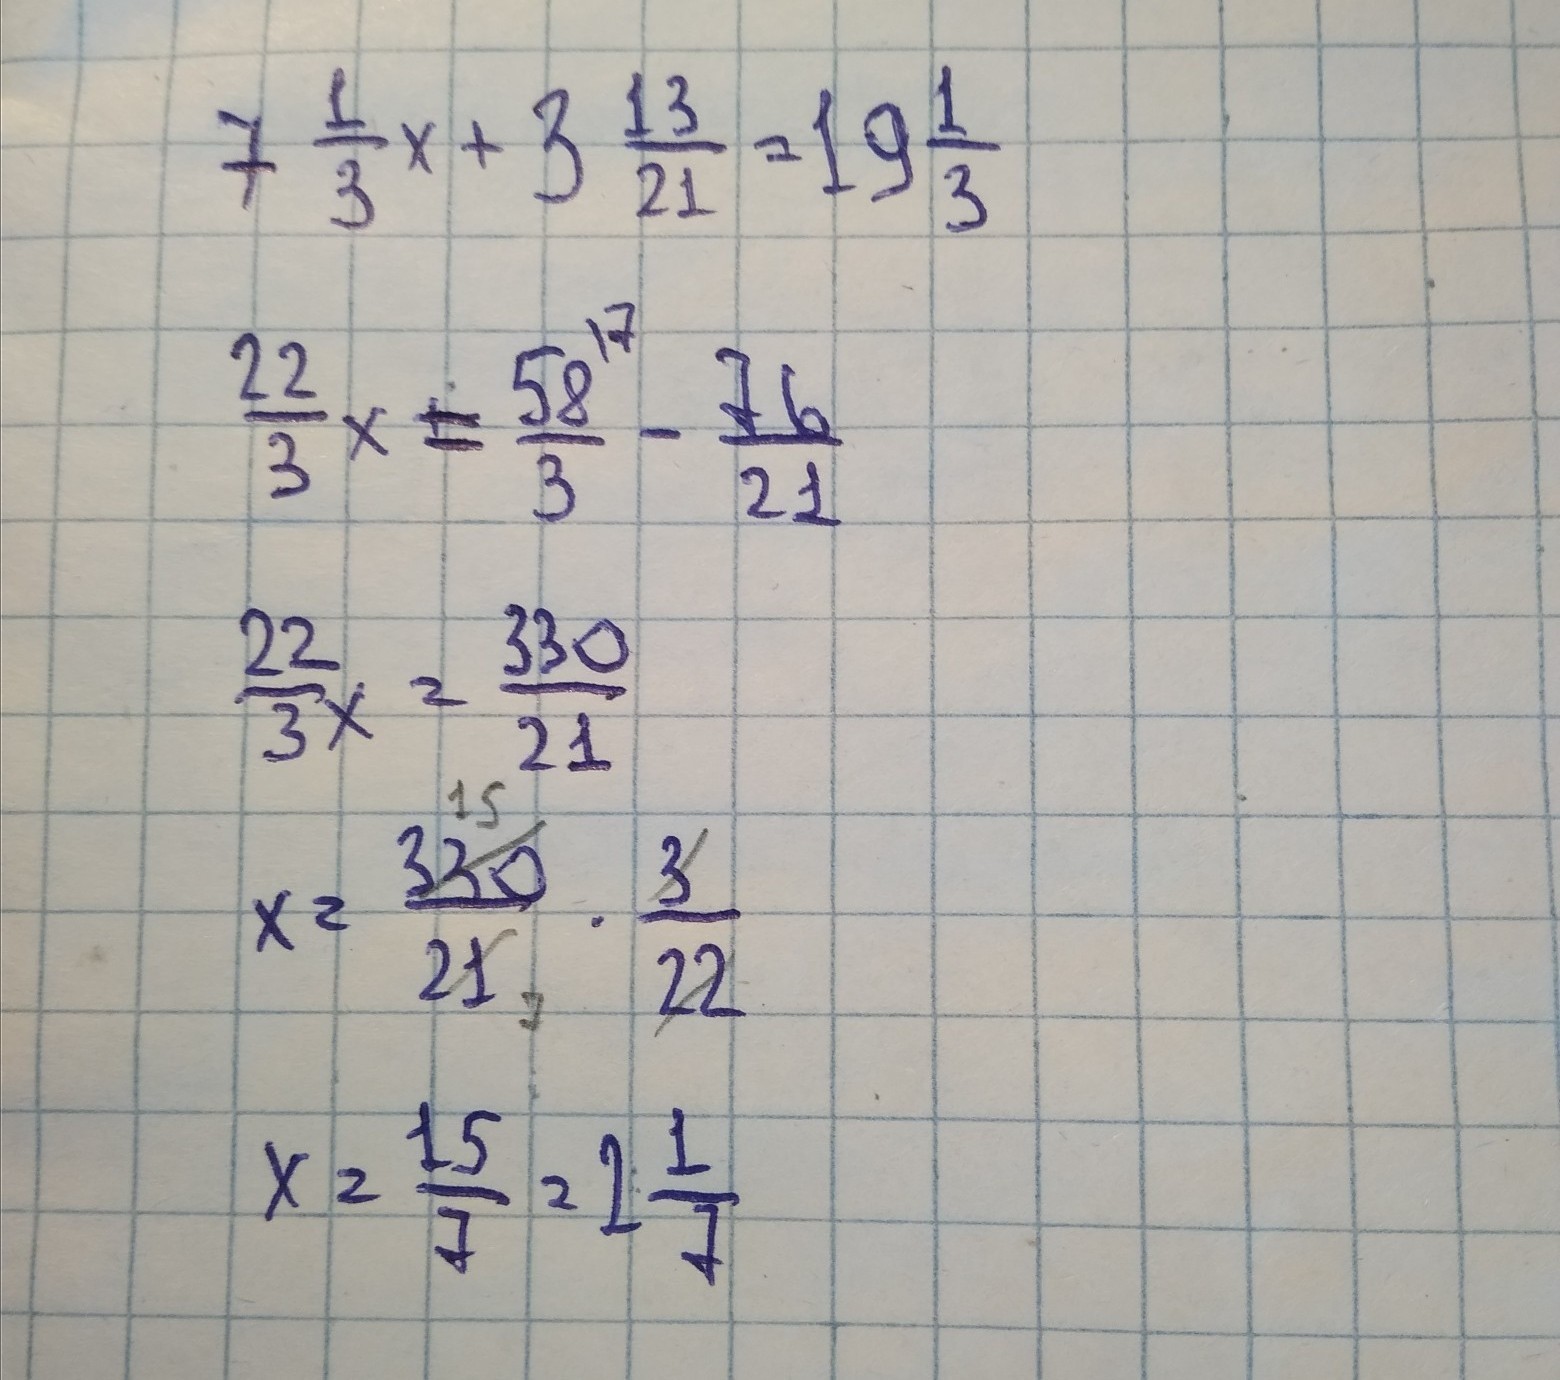 7 1/3 x + 3 13/21 = 19 1/3
22/3 x = 58/3 \7 - 76/21
22/3 x = 330/21
x = 330/21 · 3/22
15
7
x = 15/7 = 2 1/7